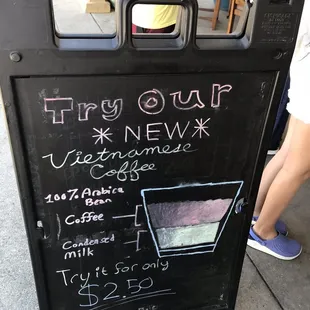 Try Our
*NEW*
Vietnamese
Coffee
100% Arabica
Bean
Coffee
Condensed
milk
Try it for only
$2.50